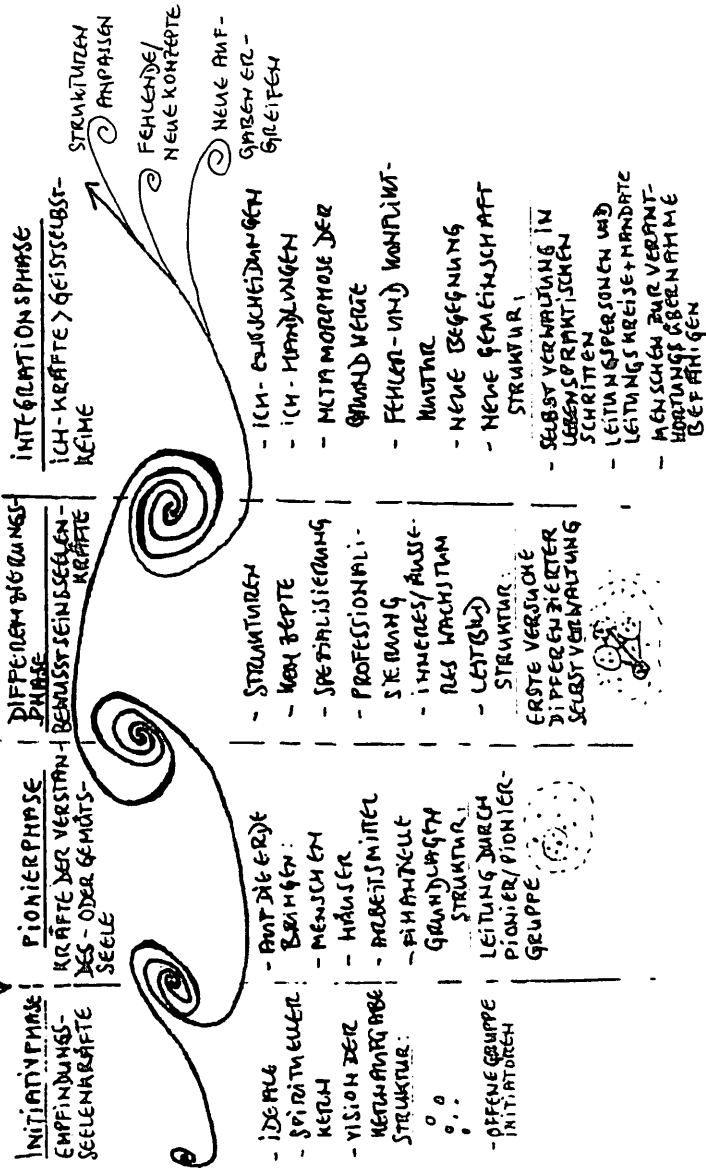 INITIATIVPHASE
EMPFINDUNGS-
SEELENKRÄFTE
- IDEALE
- SPIRITUELLER
KERN
- VISION DER
KERNAUFGABE
STRUKTUR:
- OFFENE GRUPPE
INITIATOREN
PIONIERPHASE
KRÄFTE DER VERSTAN-
DES- ODER GEMÜTS-
SEELE
- AUF DIE ERDE
BRINGEN:
- MENSCHEN
- HÄUSER
- ARBEITSMITTEL
- FINANZIELLE
GRUNDLAGEN
STRUKTUR:
LEITUNG DURCH
PIONIER/PIONIER-
GRUPPE
DIFFERENZIERUNGS-
PHASE
BEWUSSTSEINSSEELEN-
KRÄFTE
- STRUKTUREN
- KONZEPTE
- SPEZIALISIERUNG
- PROFESSIONALI-
SIERUNG
- INNERES/ÄUSSE-
RES WACHSTUM
- LEITBILD
STRUKTUR:
ERSTE VERSUCHE
DIFFERENZIERTER
SELBSTVERWALTUNG
INTEGRATIONSPHASE
ICH-KRÄFTE > GEISTSELBST-
KEIME
STRUKTUREN
ANPASSEN
FEHLENDE/
NEUE KONZEPTE
NEUE AUF-
GABEN ER-
GREIFEN
- ICH-ENTSCHEIDUNGEN
- ICH-HANDLUNGEN
- METAMORPHOSE DER
GRUNDWERTE
- FEHLER- UND KONFLIKT-
KULTUR
- NEUE BEGEGNUNG
- NEUE GEMEINSCHAFT
STRUKTUR:
- SELBSTVERWALTUNG IN
LEBENSPRAKTISCHEN
SCHRITTEN
- LEITUNGSPERSONEN UND
LEITUNGSKREISE + MANDATE
- MENSCHEN ZUR VERANT-
WORTUNGSÜBERNAHME
BEFÄHIGEN